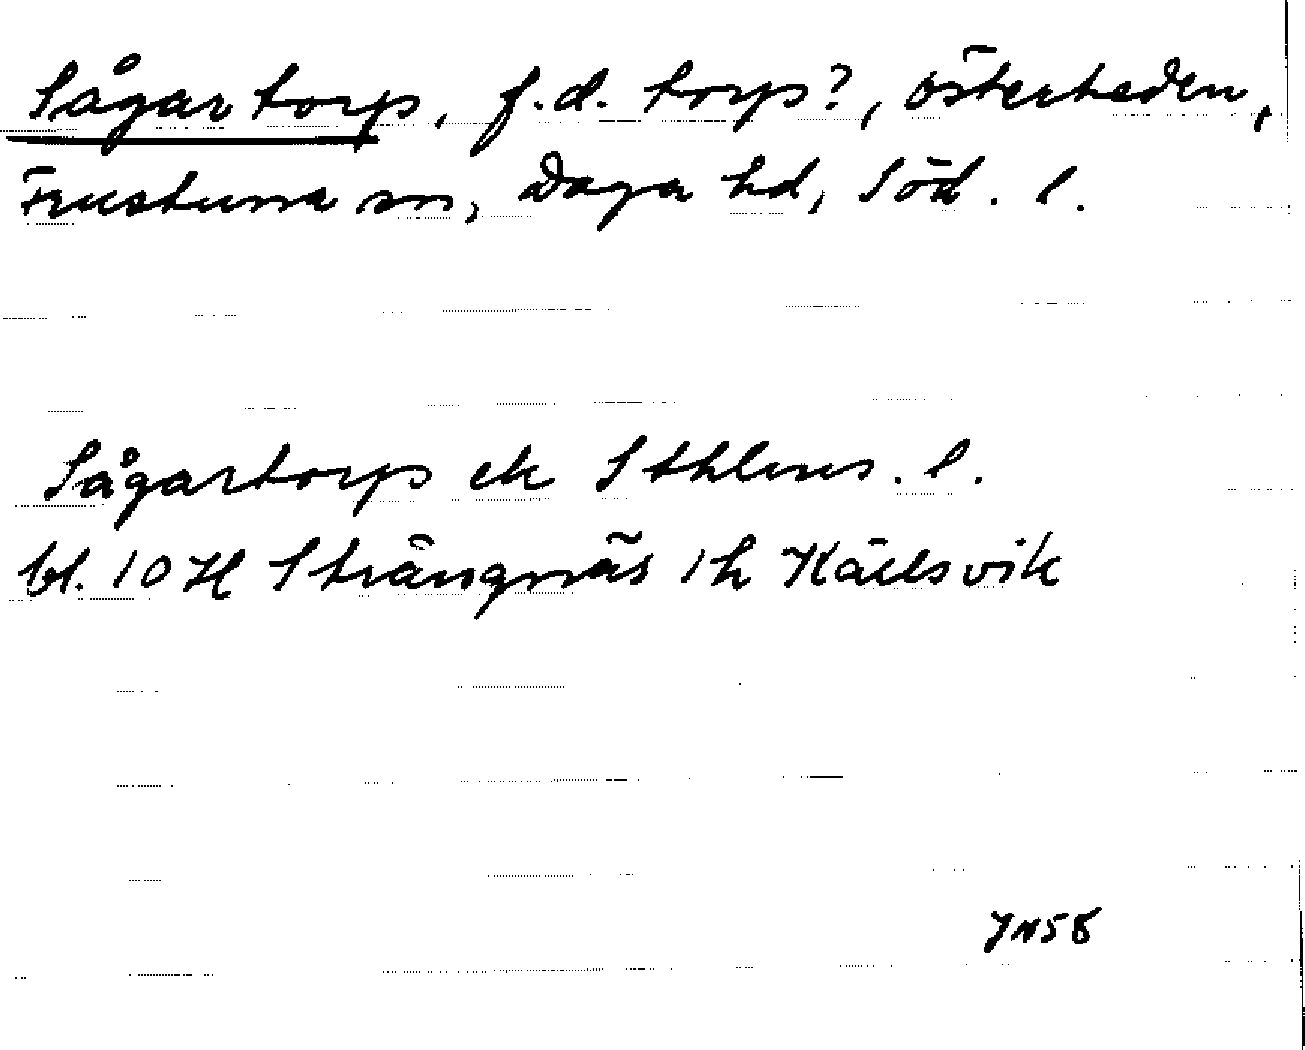 Sågartorp, f.d. torp?, österheden,
Frustuna sn, Daga hd, Söd. l.
Sågartorp ek Sthlms. l.
bl. 10 H Strängnäs 1h Källsvik
JN58